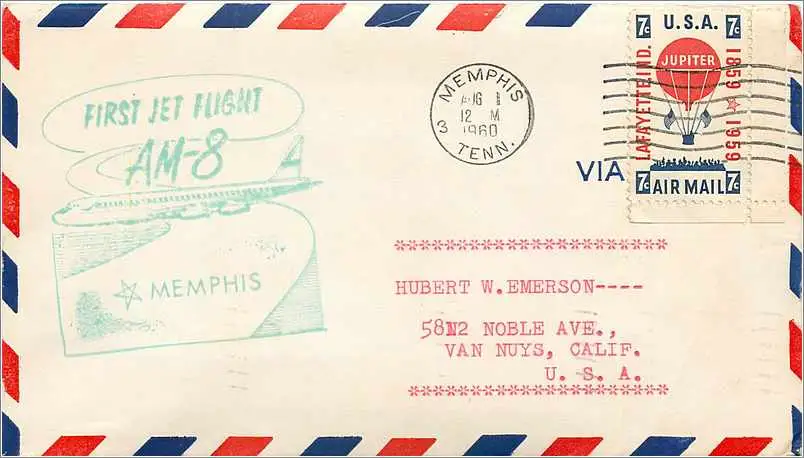 FIRST JET FLIGHT
AM-8
MEMPHIS
MEMPHIS
AUG 1
12 M
3 1960
TENN.
VIA
7c U.S.A. 7c
JUPITER
LAFAYETTE, IND.
1859 ☆ 1959
7c AIR MAIL 7c
***********************
HUBERT W.EMERSON----
NOBLE AVE.,
VAN NUYS, CALIF.
U. S. A.
***********************